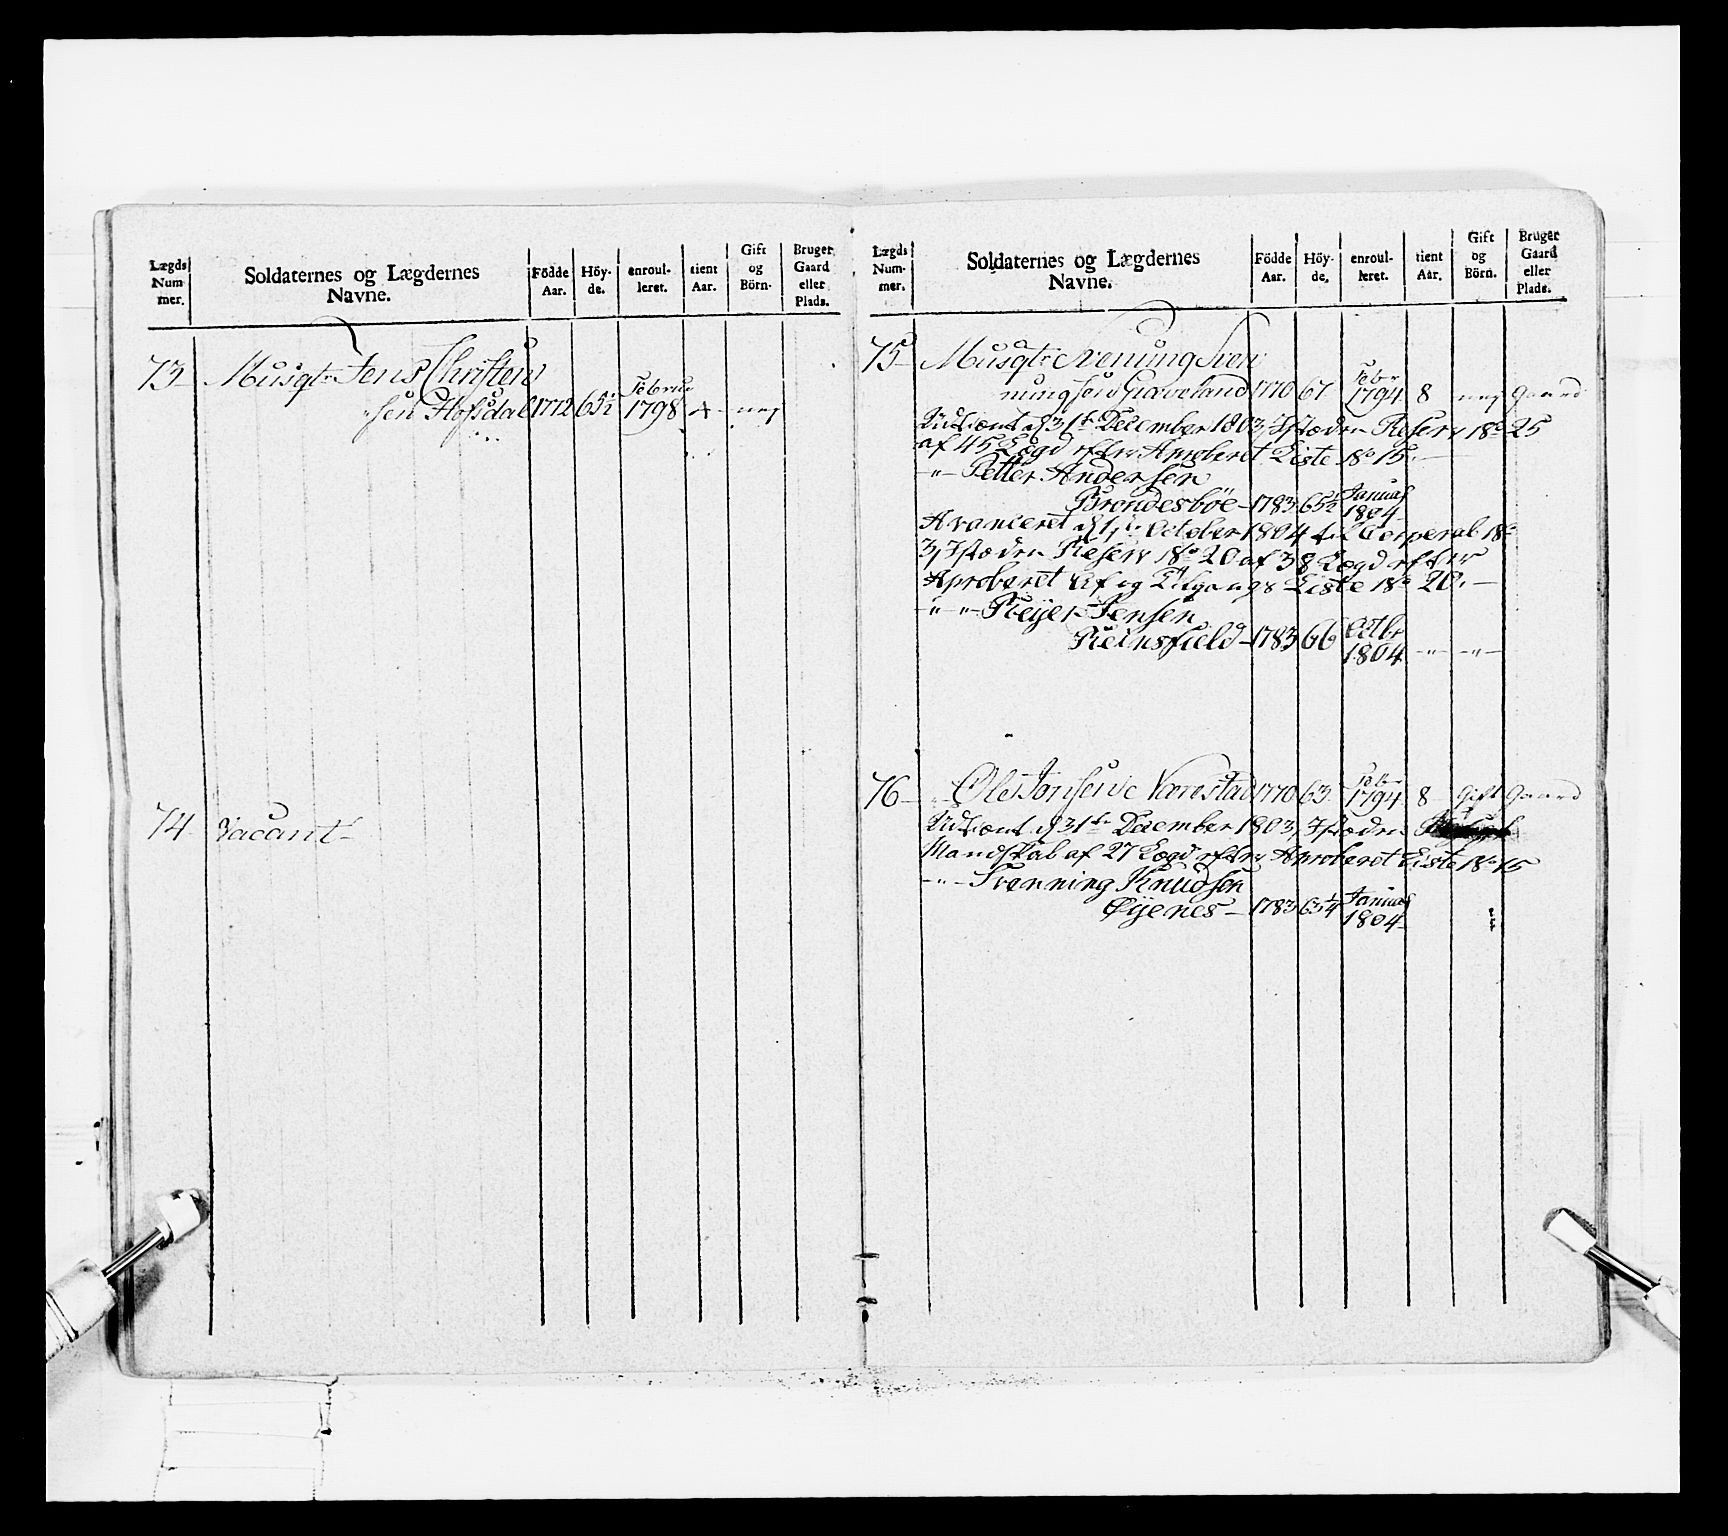 Lægds Num- mer.
Soldaternes og Lægdernes Navne.
Födde Aar.
Höy- de.
enroul- leret.
tient Aar.
Gift og Börn.
Bruger Gaard eller Plads.
73 Musqtr Jens Christen
sen Hofsdal 1772 65½ Februar 1798 4 nej
74 Vacant
Lægds Num- mer.
Soldaternes og Lægdernes Navne.
Födde Aar.
Höy- de.
enroul- leret.
tient Aar.
Gift og Börn.
Bruger Gaard eller Plads.
75 Musqtr Svenung Sven
nungsen Graveland 1770 67 Febr 1794 8 nej Gaard
Udtient d 31te December 1803, Isteden Reserv No 25
af 45 Lægd efter Aproberet Liste No 15.
Petter Andersen
Brondesböe 1783 65½ Januarj 1804
Avanceret d 1te October 1804 til Corporal No
3, Isteden Reserv No 20 af 38 Lægd efter
Aproberet Af og Tilgangs Liste No 20.
Reÿer Jensen
Reinsfield 1783 66 Octbr 1804
76 Ole Jonsen Nærestad 1770 63 Febr 1794 8 Gift Gaard
Udtient d 31te December 1803, Isteden
Mandskab af 27 Lægd efter Aproberet Liste No 15
Svenning Knudsen
Øÿenes 1783 63¼ Januarj 1804